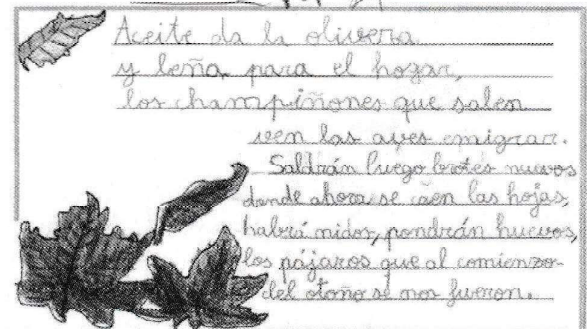 Aceite da la olivera
y leña para el hogar,
los champiñones que salen
ven las aves emigrar.
Saldrán luego brotes nuevos
donde ahora se caen las hojas,
habrá nidos, pondrán huevos,
los pájaros que al comienzo
del otoño se nos fueron.